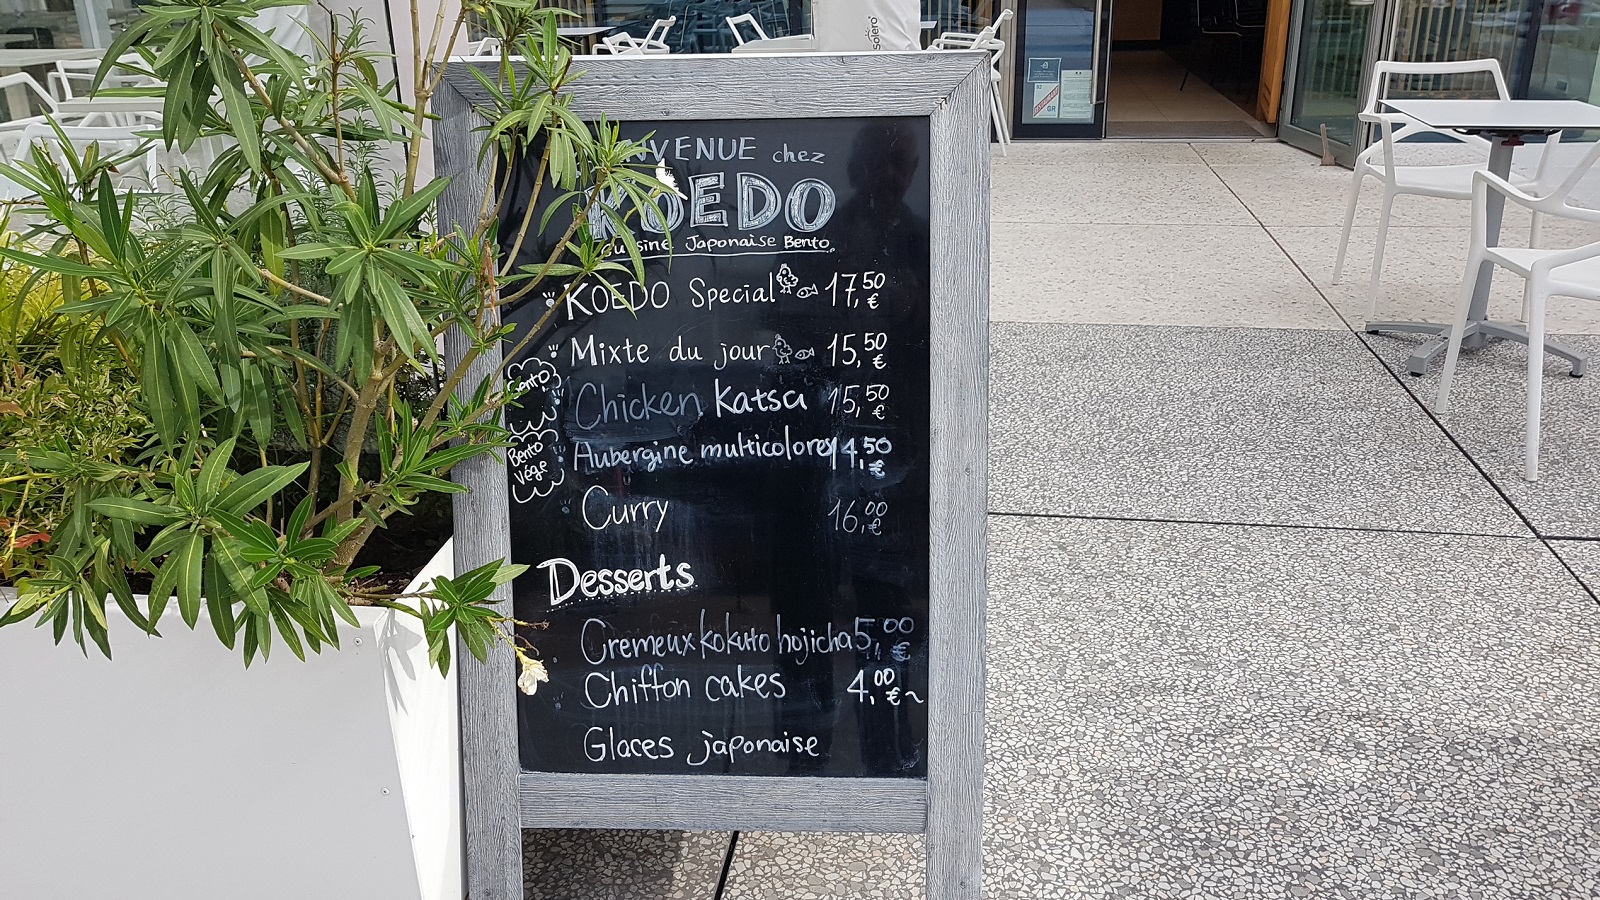 Solero
NVENUE chez
KOEDO
Cuisine Japonaise Bento
KOEDO Special 17,50 €
Mixte du jour 15,50 €
Bento
Chicken Katsu 15,50 €
Bento Vége
Aubergine multicolores 14,50 €
Curry 16,00 €
Desserts
Cremeux kokuto hojicha 5,00 €
Chiffon cakes 4,00 €~
Glaces japonaise